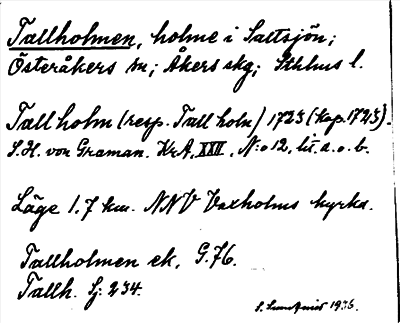 Tallholmen, holme i Saltsjön;
Österåkers sn; Åkers skg; Sthlms l.
Tall holm (resp. Tall holn) 1723 (kop. 1723).
S.H. von Graman. KrA, XXII, N:o 12, lit. a. o. b.
Läge 1.7 km. NNV Vaxholms kyrka.
Tallholmen ek, G.76.
Tallh. Sj: 234.
S. 1936.